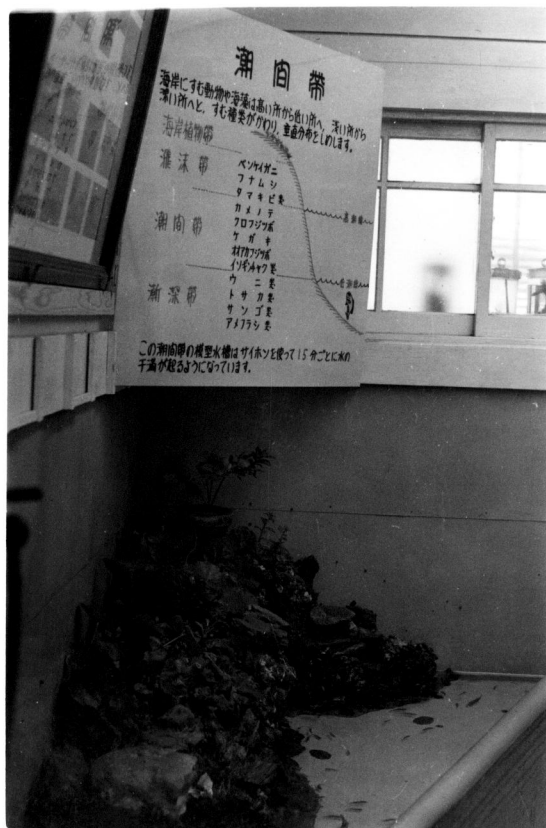 潮間帯
海岸にすむ動物や海藻は高い所から低い所へ、浅い所から
深い所へと、すむ種類がかわり、垂直分布をしめします。
海岸植物帯
飛沫帯
潮間帯
漸深帯
ベンケイガニ
フナムシ
タマキビ類
カメノテ
クロフジツボ
ケガキ
オオアカフジツボ
イソギンチャク類
ウニ類
トサカ類
サンゴ類
アメフラシ類
高潮線
低潮線
この潮間帯の模型水槽はサイホンを使って15分ごとに水の
干満が起るようになっています。